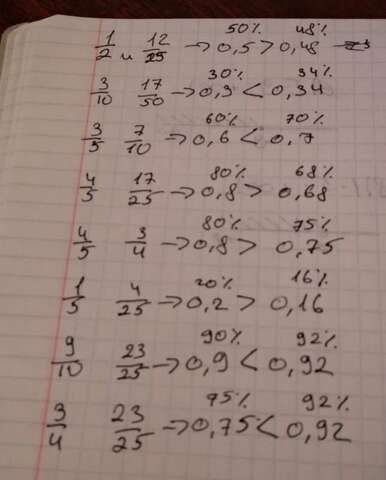 50% 48%
1/2 и 12/25 → 0,5 > 0,48
30% 34%
3/10 17/50 → 0,3 < 0,34
60% 70%
3/5 7/10 → 0,6 < 0,7
80% 68%
4/5 17/25 → 0,8 > 0,68
80% 75%
4/5 3/4 → 0,8 > 0,75
20% 16%
1/5 4/25 → 0,2 > 0,16
90% 92%
9/10 23/25 → 0,9 < 0,92
75% 92%
3/4 23/25 → 0,75 < 0,92